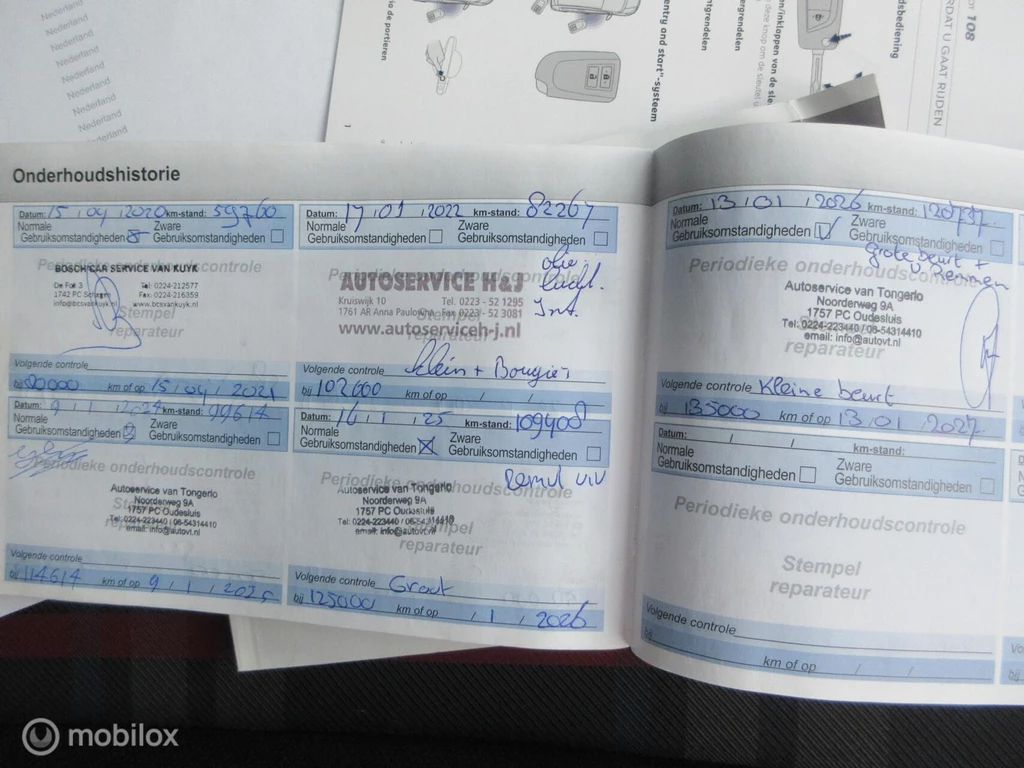 Nederland
Nederland
Nederland
Nederland
Nederland
Nederland
Nederland
Nederland
a de portieren
1
entry and start"-systeem
ntgrendelen
ergrendelen
en/inklappen van de sle
deze knop om de sleutel u
dsbediening
108
RDAT U GAAT RIJDEN
Onderhoudshistorie
Datum: 15 / 04 / 2020 km-stand: 59760
Normale
Gebruiksomstandigheden
Zware
Gebruiksomstandigheden
Periodieke onderhoudscontrole
BOSCH CAR SERVICE VAN KUYK
De Fok 3 Tel: 0224-212577
1742 PC Schagen Fax: 0224-216359
info@bcsvankuyk.nl www.bcsvankuyk.nl
Stempel
reparateur
Volgende controle
bij 90000 km of op 15 / 04 / 2021
Datum: 17 / 01 / 2022 km-stand: 82267
Normale
Gebruiksomstandigheden
Zware
Gebruiksomstandigheden
olie
lucht
Int.
AUTOSERVICE H&J
Kruiswijk 10 Tel. 0223 - 52 1295
1761 AR Anna Paulowna Fax 0223 - 52 3081
Stempel
www.autoserviceh-j.nl
reparateur
Volgende controle Klein + Bougies
bij 102600 km of op / /
Datum: 9 / 1 / 2024 km-stand: 99614
Normale
Gebruiksomstandigheden
Zware
Gebruiksomstandigheden
Periodieke onderhoudscontrole
Autoservice van Tongerlo
Noorderweg 9A
1757 PC Oudesluis
Tel: 0224-223440 / 06-54314410
email: info@autovt.nl
Volgende controle
bij 114614 km of op 9 / 1 / 2025
Datum: 16 / 1 / 25 km-stand: 109408
Normale
Gebruiksomstandigheden
Zware
Gebruiksomstandigheden
Periodieke onderhoudscontrole
Autoservice van Tongerlo
Noorderweg 9A
1757 PC Oudesluis
Tel: 0224-223440 / 06-54314410
email: info@autovt.nl
Stempel
reparateur
Volgende controle Groot
bij 125000 km of op / 1 / 2026
Datum: 13 / 01 / 2026 km-stand: 120737
Normale
Gebruiksomstandigheden
Zware
Gebruiksomstandigheden
Grote beurt +
V. Remmen
Periodieke onderhoudscontrole
Autoservice van Tongerlo
Noorderweg 9A
1757 PC Oudesluis
Tel: 0224-223440 / 06-54314410
email: info@autovt.nl
reparateur
Volgende controle Kleine beurt
bij 135000 km of op 13 / 01 / 2027
Datum: / / km-stand:
Normale
Gebruiksomstandigheden
Zware
Gebruiksomstandigheden
Periodieke onderhoudscontrole
Stempel
reparateur
Volgende controle
bij km of op / /
mobilox